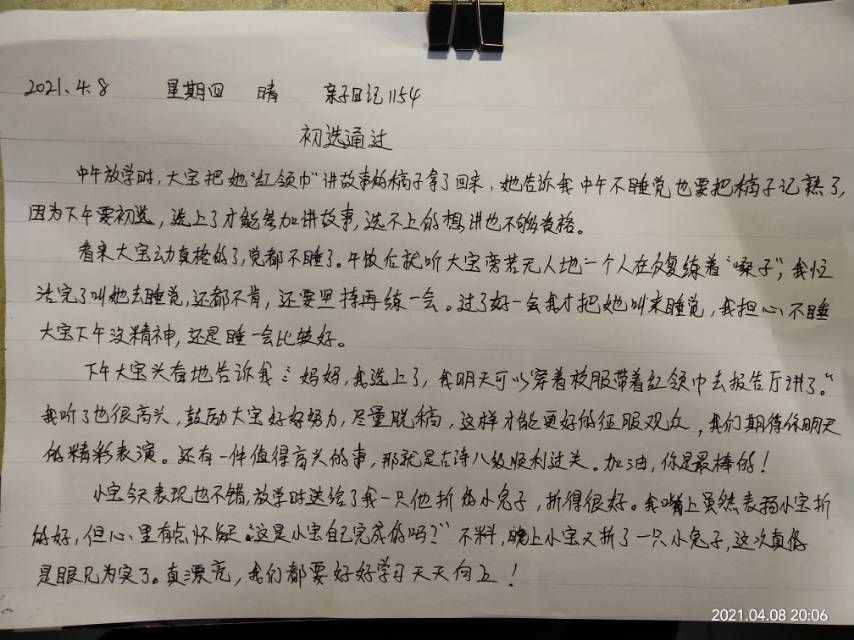 2021.4.8 星期四 晴 亲子日记1154
初选通过
中午放学时,大宝把她"红领巾"讲故事的稿子拿了回来,她告诉我中午不睡觉也要把稿子记熟了,
因为下午要初选,选上了才能参加讲故事,选不上的想讲也不够资格。
看来大宝动真格的了,觉都不睡了。午饭后就听大宝旁若无人地一个人在反复练着"嗓子",我忙
活完了叫她去睡觉,还都不肯,还要坚持再练一会。过了好一会我才把她叫来睡觉,我担心不睡
大宝下午没精神,还是睡一会比较好。
下午大宝兴奋地告诉我:"妈妈,我选上了,我明天可以穿着校服带着红领巾去报告厅讲了。"
我听了也很高兴,鼓励大宝好好努力,尽量脱稿,这样才能更好的征服观众,我们期待你明天
的精彩表演。还有一件值得高兴的事,那就是古诗八级顺利过关。加油,你是最棒的!
小宝今天表现也不错,放学时送给了我一只他折的小兔子,折得很好。我嘴上虽然表扬小宝折
的好,但心里有点怀疑"这是小宝自己完成的吗?"不料,晚上小宝又折了一只小兔子,这次真的
是眼见为实了。真漂亮,我们都要好好学习天天向上!
2021.04.08 20:06